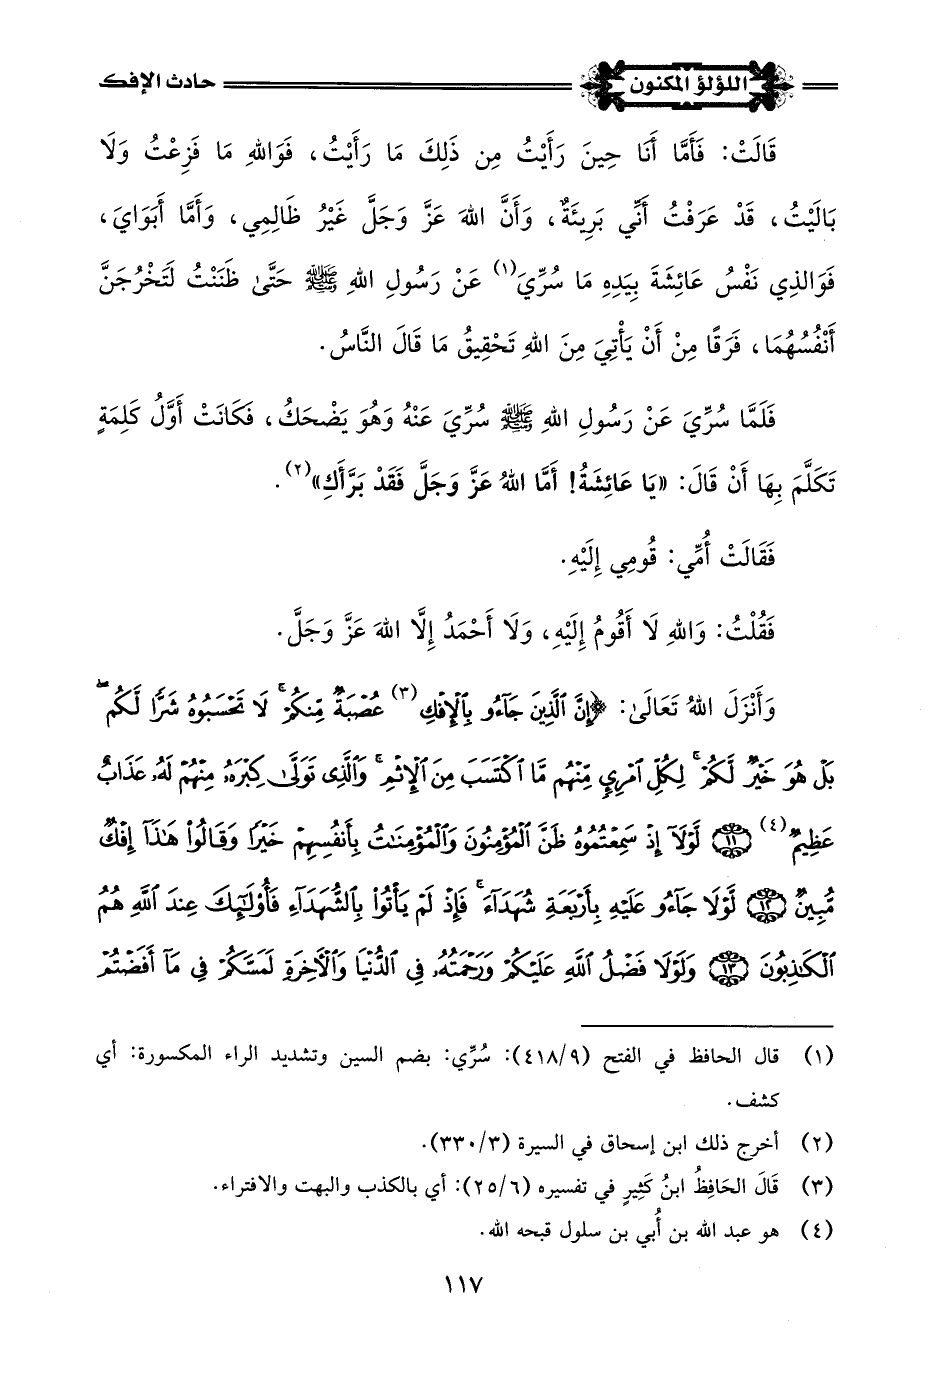 اللؤلؤ المكنون حادث الإفك
قَالَتْ: فَأَمَّا أَنَا حِينَ رَأَيْتُ مِن ذَلِكَ مَا رَأَيْتُ، فَوَاللهِ مَا فَزِعْتُ وَلَا
بَالَيْتُ، قَدْ عَرَفْتُ أَنِّي بَرِيئَةٌ، وَأَنَّ اللهَ عَزَّ وَجَلَّ غَيْرُ ظَالِمِي، وَأَمَّا أَبَوَايَ،
فَوَالذِي نَفْسُ عَائِشَةَ بِيَدِهِ مَا سُرِّيَ(١) عَنْ رَسُولِ اللهِ ﷺ حَتَّى ظَنَنْتُ لَتَخْرُجَنَّ
أَنْفُسُهُمَا، فَرَقًا مِنْ أَنْ يَأْتِيَ مِنَ اللهِ تَحْقِيقُ مَا قَالَ النَّاسُ.
فَلَمَّا سُرِّيَ عَنْ رَسُولِ اللهِ ﷺ سُرِّيَ عَنْهُ وَهُوَ يَضْحَكُ، فَكَانَتْ أَوَّلُ كَلِمَةٍ
تَكَلَّمَ بِهَا أَنْ قَالَ: «يَا عَائِشَةُ! أَمَّا اللهُ عَزَّ وَجَلَّ فَقَدْ بَرَّأَكِ»(٢).
فَقَالَتْ أُمِّي: قُومِي إِلَيْهِ.
فَقُلْتُ: وَاللهِ لَا أَقُومُ إِلَيْهِ، وَلَا أَحْمَدُ إِلَّا اللهَ عَزَّ وَجَلَّ.
وَأَنْزَلَ اللهُ تَعَالَى: ﴿إِنَّ ٱلَّذِينَ جَآءُو بِٱلْإِفْكِ(٣) عُصْبَةٌ مِّنكُمْ ۚ لَا تَحْسَبُوهُ شَرًّا لَّكُم ۖ
بَلْ هُوَ خَيْرٌ لَّكُمْ ۚ لِكُلِّ ٱمْرِئٍ مِّنْهُم مَّا ٱكْتَسَبَ مِنَ ٱلْإِثْمِ ۚ وَٱلَّذِى تَوَلَّىٰ كِبْرَهُۥ مِنْهُمْ لَهُۥ عَذَابٌ
عَظِيمٌ(٤) ١١ لَّوْلَآ إِذْ سَمِعْتُمُوهُ ظَنَّ ٱلْمُؤْمِنُونَ وَٱلْمُؤْمِنَٰتُ بِأَنفُسِهِمْ خَيْرًا وَقَالُوا۟ هَٰذَآ إِفْكٌ
مُّبِينٌ ١٢ لَّوْلَا جَآءُو عَلَيْهِ بِأَرْبَعَةِ شُهَدَآءَ ۚ فَإِذْ لَمْ يَأْتُوا۟ بِٱلشُّهَدَآءِ فَأُو۟لَٰٓئِكَ عِندَ ٱللَّهِ هُمُ
ٱلْكَٰذِبُونَ ١٣ وَلَوْلَا فَضْلُ ٱللَّهِ عَلَيْكُمْ وَرَحْمَتُهُۥ فِى ٱلدُّنْيَا وَٱلْءَاخِرَةِ لَمَسَّكُمْ فِى مَآ أَفَضْتُمْ
(١) قال الحافظ في الفتح (٤١٨/٩): سُرِّي: بضم السين وتشديد الراء المكسورة: أي
كشف.
(٢) أخرج ذلك ابن إسحاق في السيرة (٣٣٠/٣).
(٣) قَالَ الحَافِظُ ابنُ كَثِيرٍ في تفسيره (٢٥/٦): أي بالكذب والبهت والافتراء.
(٤) هو عبد الله بن أُبي بن سلول قبحه الله.
١١٧